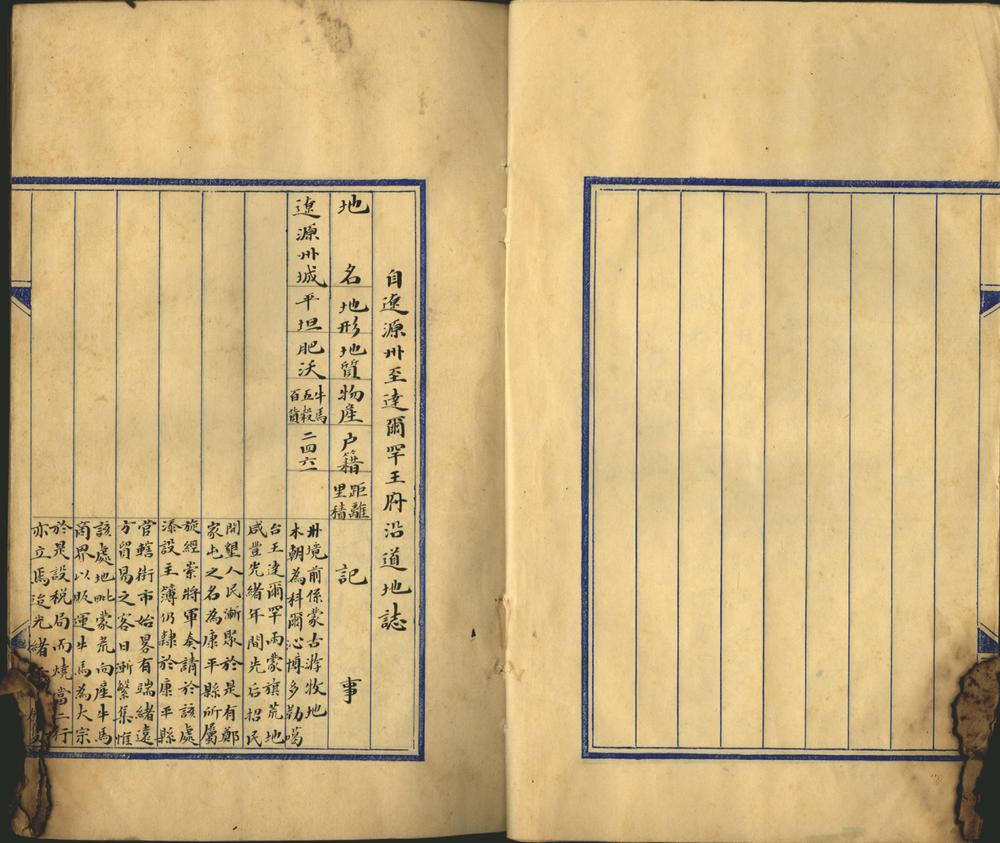 自遼源州至達爾罕王府沿道地誌
地名 地形 地質 物產 户籍 距離里積 記事
遼源州城 平坦 肥沃 牛馬五穀百貨 二四六一
州境前係蒙古游牧地
本朝為科爾沁博多勒噶
台王達爾罕兩蒙旗荒地
咸豐光緒年間先后招民
開墾人民漸聚於是有鄭
家屯之名為康平縣所屬
旋經崇將軍奏請於該處
添設主簿仍隸於康平縣
管轄街市始畧有端緒遠
方貿易之客日漸繁集惟
該處地毗蒙荒向產牛馬
商界以販運牛馬為大宗
於是設稅局而燒當二行
亦立焉迨光緒